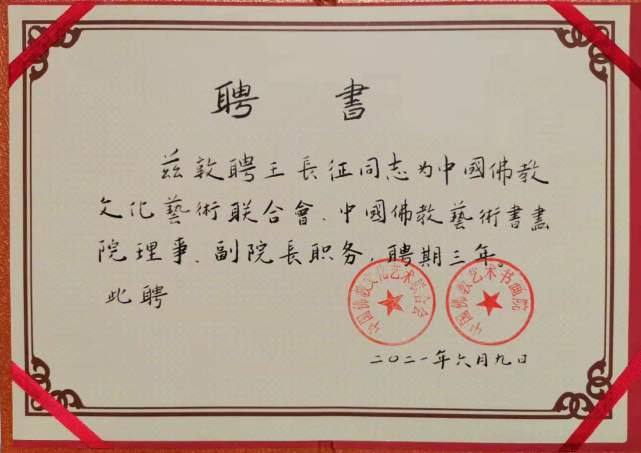 聘 書
兹敦聘王長征同志为中國佛教
文化藝術联合會、中國佛教藝術書畫
院理事、副院長职务,聘期三年。
此聘
中国佛教文化艺术联合会
中国佛教艺术书画院
二〇二一年六月九日